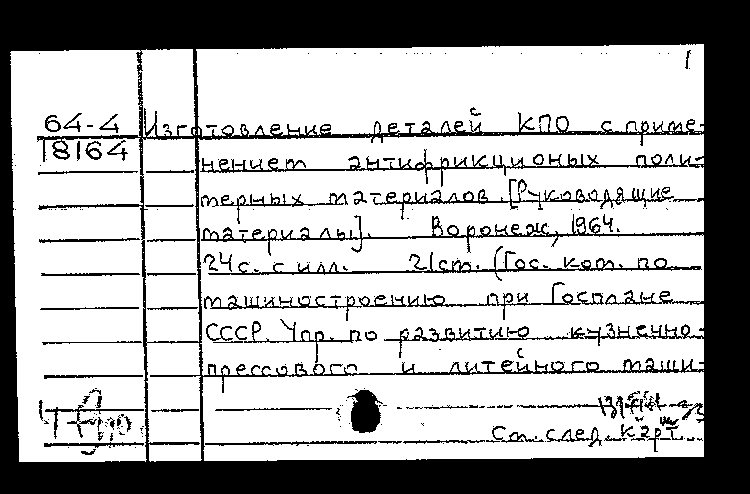 1
64-4 Изготовление деталей КПО с приме-
18164 нением антифрикционых поли-
мерных материалов. [Руководящие
материалы]. Воронеж, 1964.
24с. с илл. 21см. (Гос. ком. по
машиностроению при Госплане
СССР. Упр. по развитию кузнечно-
прессового и литейного маши-
См. след. карт.